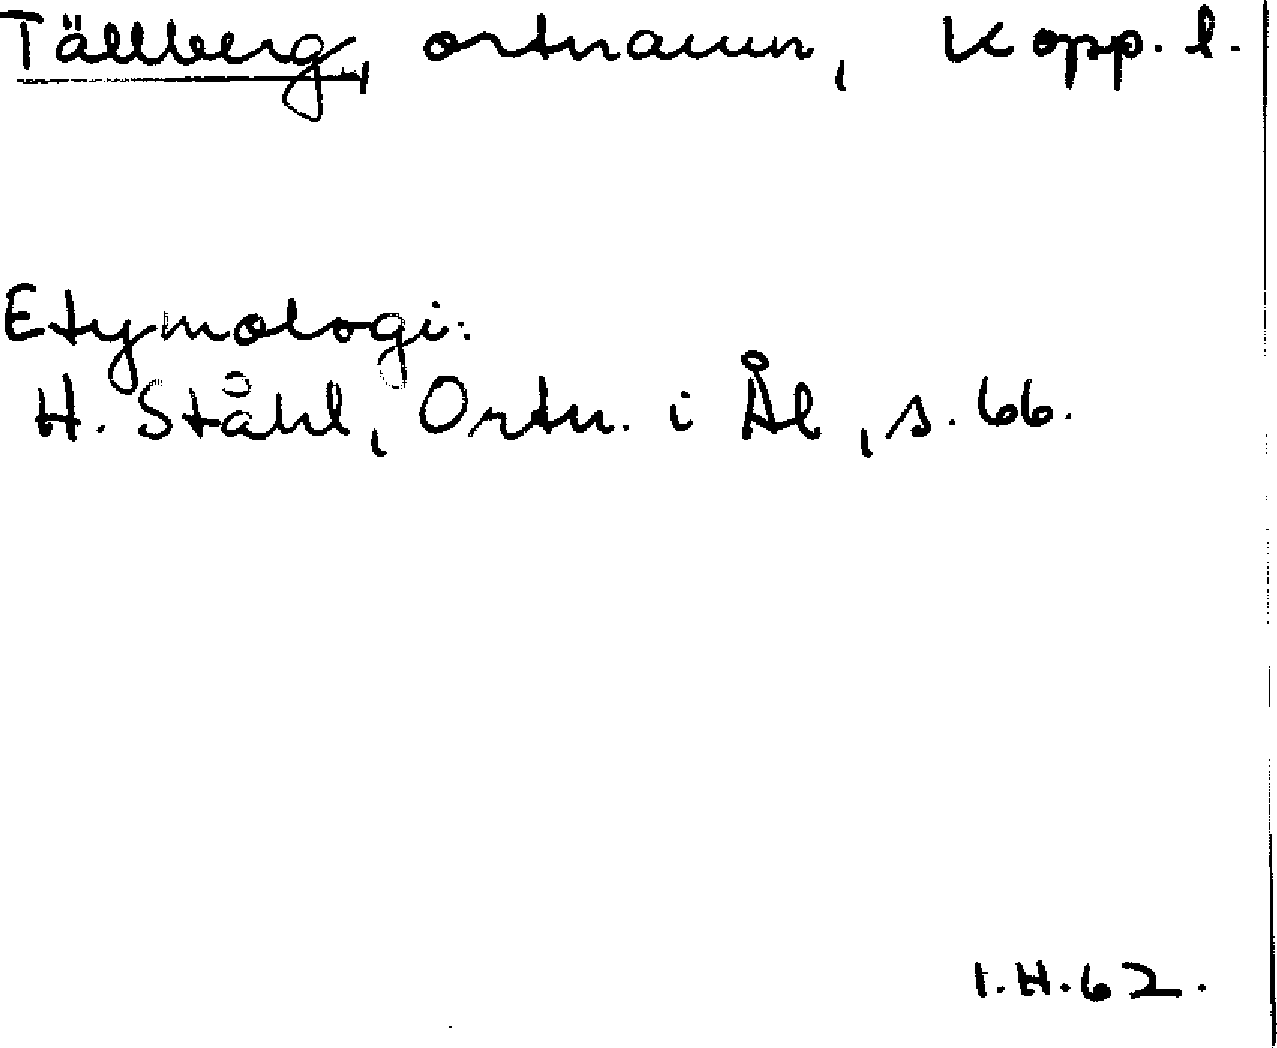 Tällberg, ortnamn, Kopp. l.
Etymologi:
H. Ståhl, Ortn. i Ål, s. 66.
I.H.62.